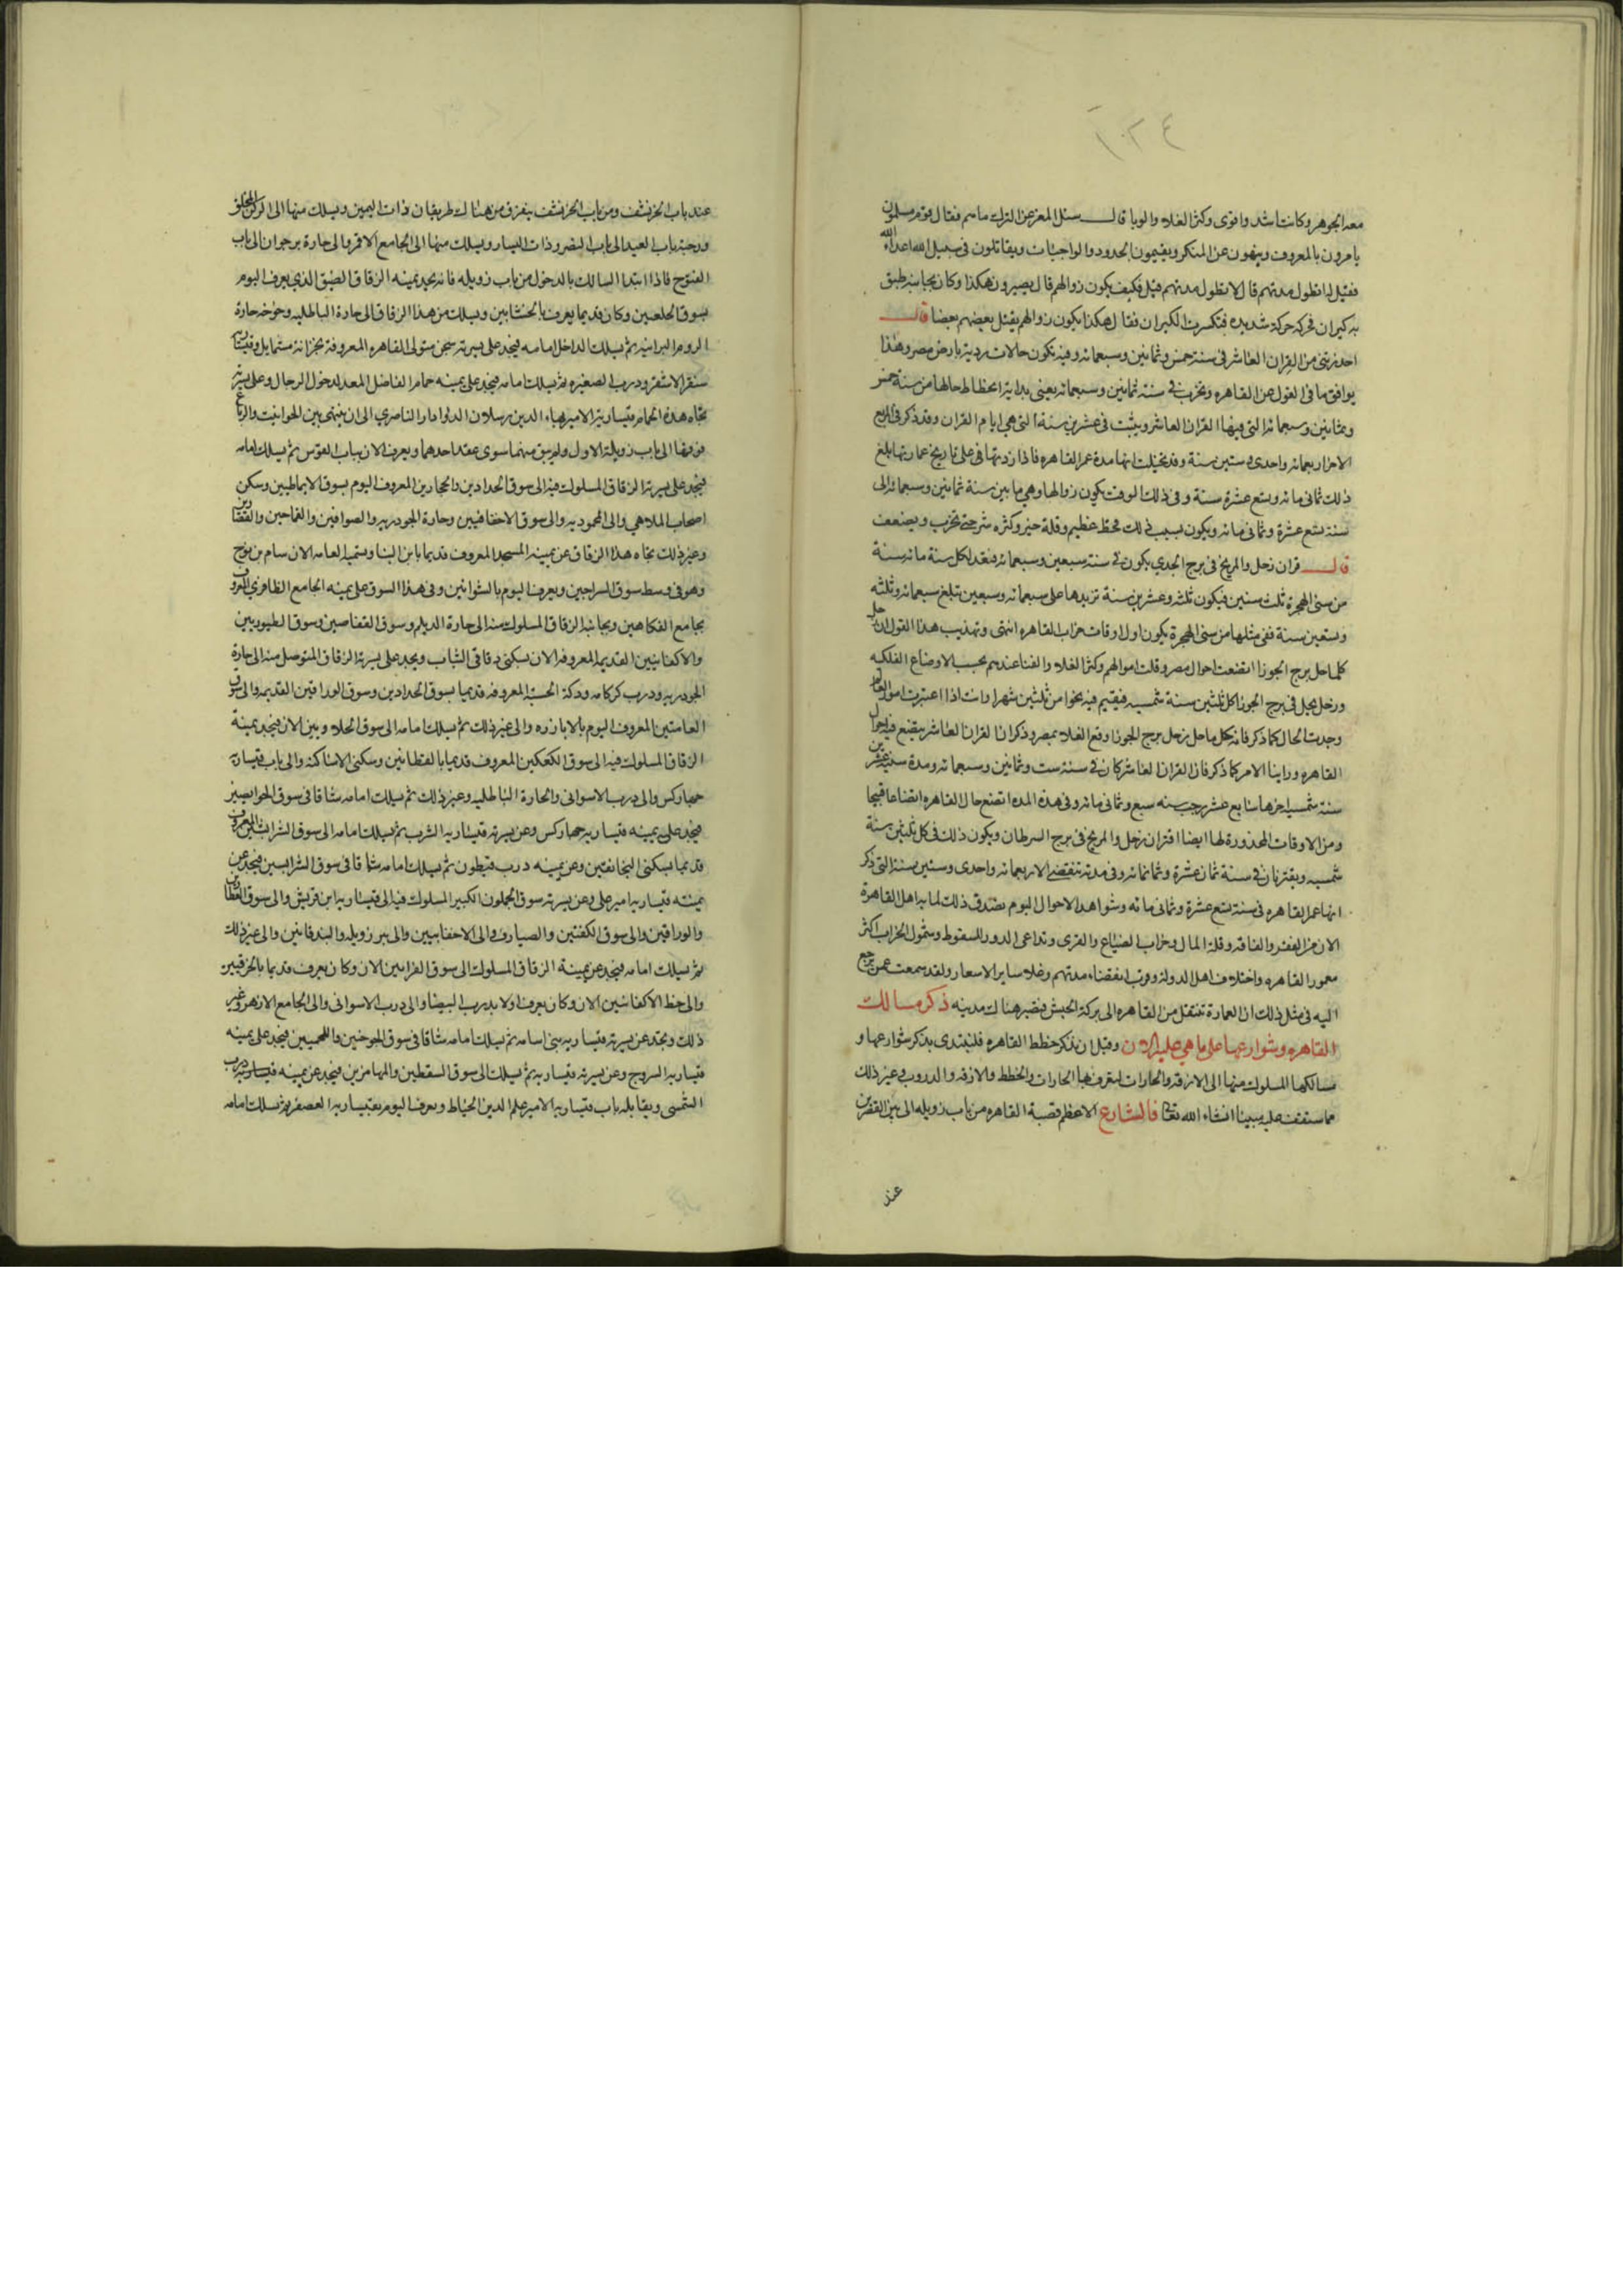 ١٠٢٤
معه الجوهر وكانت اشد واقوى وكثر الغلاء والوبا قال سئل المعز عن الترك ما هم فقال قوم مسلمون
يامرون بالمعروف وينهون عن المنكر ويقيمون الحدود والواجبات ويقاتلون فى سبيل الله اعداء الله
فقيل له انطول مدتهم قال لا تطول مدتهم قيل فكيف يكون زوالهم قال يصيرون هكذا وكان بجانبه طبق
به كيزان فحركه حركة شديده فتكسرت الكيزان فقال هكذا يكون زوالهم يقتل بعضهم بعضا قال
احذر شى من القران العاشر فى سنة خمس وثمانين وسبعمائه وفيه تكون حالات ردية بارض مصر وهذا
يوافق ما فى القول عن القاهره وتخرب فى سنة ثمانين وسبعمائه يعنى بداية انحطاط حالها من سنة خمس
وثمانين وسبعمائه التى فيها القران العاشر ويثبت فى عشرين سنة التى هى ايام القران وقد ذكر فى الربع
الاخر اربعمائه واحدى وستين سنة وقد تخيلت انها مدة عمر القاهره فاذا زدتها فى على تاريخ عمارتها بلغ
ذلك ثمانى مائه وتسع عشرة سنة وفى ذلك الوقت يكون زوالها وهى ما بين سنة ثمانين وسبعمائه الى
سنة تسع عشرة وثمانى مائه ويكون سبب ذلك قحط عظيم وقلة خير وكثره شر حتى تخرب ويضعف
قال قران زحل والمريخ فى برج الجدي يكون فى سنة سبعين وسبعمائه فنعد لكل سنة مائه سنة
من سنى الهجرة ثلث سنين فيكون ثلثه وعشرين سنة تزيدها على سبعمائه وسبعين تبلغ سبعمائه وثلثه
وتسعين سنة ففى مثلها من سنى الهجرة يكون اول اوقات خراب القاهره انتهى وتهذيب هذا القول ان زحل
كلما حل برج الجوزا اتضعت احوال مصر وقلت اموالهم وكثر الغلاء والفنا عندهم بحسب الاوضاع الفلكيه
وزحل يحل فى برج الجوزا كل ثلثين سنة شمسيه فيقيم فيه نحوا من ثلثين شهرا وانت اذا اعتبرت امور العالم
وجدت الحال كما ذكر فانه كل ما حل زحل برج الجوزا وقع الغلاء بمصر وذكر ان القران العاشر يتضع فيه احوال
القاهره وراينا الامر كما ذكر فان القران العاشر كان فى سنة ست وثمانين وسبعمائه ومدة سنيه عشرين
سنة شمسيه اخرها سابع عشر رجب سنه سبع وثمانى مائه وفى هذه المده اتضع حال القاهره اتضاعا قبيحا
ومن الاوقات المحذورة لها ايضا اقتران زحل والمريخ فى برج السرطان ويكون ذلك فى كل ثلثين سنة
شمسيه ويقترنان فى سنة ثمان عشرة وثمانمائه وفى مدته تنقضى الاربعمائه واحدى وستين سنة التى ذكر
انها عمر القاهره فى سنة تسع عشرة وثمانى مائه وشواهد الاحوال اليوم تصدق ذلك لما به اهل القاهرة
الان من الفقر والفاقه وقلة المال وخراب الضياع والقرى وتداعى الدور للسقوط وشمول الخراب اكثر
معمور القاهره واختلاف اهل الدولة وقرب انقضاء مدتهم وغلاء ساير الاسعار ولقد سمعت عمن يرجع
اليه فى مثل ذلك ان العمارة تنتقل من القاهره الى بركة الحبش فتصير هنالك مدينه ذكر مسالك
القاهره وشوارعها على ما هي عليه الان وقبل ان نذكر خطط القاهره فلنبتدى بذكر شوارعها و
مسالكها المسلوك منها الى الازقه والحارات لتعرف بها الحارات والخطط والازقه والدروب وغير ذلك
مما ستقف عليه مبينا ان شاء الله تعالى فالشارع الاعظم قصبة القاهره من باب زويله الى بين القصرين
عند
عند باب الخرنشف ومن باب الخرنشف يتفرق من هنالك طريقان ذات اليمين ويسلك منها الى الركن المخلق
ورحبة باب العيد الى باب النصر وذات اليسار ويسلك منها الى الجامع الاقمر والى حارة برجوان الى باب
الفتوح فاذا ابتدا السالك بالدخول من باب زويله فانه يجد يمينه الزقاق الضيق الذي يعرف اليوم
بسوق الخلعيين وكان قديما يعرف بالخشابين ويسلك من هذا الزقاق الى حارة الباطليه وخوخه حارة
الروم البرانيه ثم يسلك الداخل امامه فيجد على يسرته سجن متولى القاهره المعروفة بخزانة شمايل وقيسارية
سنقر الاشقر ودرب الصغيره ثم يسلك امامه فيجد على يمينه حمام الفاضل المعد لدخول الرجال وعلى يسرته
تجاه هذه الحمام قيسارية الامير بهاء الدين رسلان الدوادار الناصري الى ان ينتهى بين الحوانيت والرباع
فوقها الى باب زويلة الاول ولم يبق منهما سوى عقد احدهما ويعرف الان بباب القوس ثم يسلك امامه
فيجد على يسرته الزقاق المسلوك فيه الى سوق الحدادين والحجارين المعروف اليوم بسوق الانماطيين وسكن
اصحاب الملاهي والى المحموديه والى سوق الاخفافيين وحارة الجودريه والصوافين والقماحين والقصارين
وغير ذلك تجاه هذا الزقاق عن يمينه المسجد المعروف قديما بابن البنا وتسميه العامه الان سام بن نوح
وهو فى وسط سوق السراجين ويعرف اليوم بالشوائين وفى هذا السوق على يمينه الجامع الظافري المعروف
بجامع الفكاهين وبجانبه الزقاق المسلوك منه الى حارة الديلم وسوق القفاصين وسوق الطيوريين
والاكفانيين القديمه المعروفه الان بسكنى دقاقى الثياب ويجد على يسرته الزقاق المتوصل منه الى حارة
الجودريه ودرب كركامه ودكة الحسبة المعروفه قديما بسوق الحدادين وسوق الوراقين القديمه والى سوق
الفامتين المعروف اليوم بالابازره والى غير ذلك ثم يسلك امامه الى سوق الحلاويين الان فيجد يمينة
الزقاق المسلوك فيه الى سوق الكعكين المعروف قديما بالقطانين وسكنى الاساكفه والى باب قيساريه
جهاركس والى درب الاسوانى والحارة الباطليه وغير ذلك ثم يسلك امامه شاقا فى سوق الحوايصيين
فيجد على يمينه قيساريه جهاركس وعن يسرته قيساريه الشرب ثم يسلك امامه الى سوق الشرابشيين المعروف
قديما بسكنى البخانقيين وعن يمينه درب قيطون ثم يسلك امامه شاقا فى سوق الشرابشيين فيجد عن
يمينه قيساريه امير على وعن يسرته سوق الجملون الكبير المسلوك فيه الى قيساريه ابن قريش والى سوق العطارين
والوراقين والى سوق الكفتيين والصيارف والى الاخفافيين والى بير زويله والبندقانيين والى غير ذلك
ثم يسلك امامه فيجد عن يمينة الزقاق المسلوك الى سوق الفرايين الان وكان يعرف قديما بالخرقيين
والى خط الاكفانيين الان وكان يعرف اولا بدرب البيضا والى درب الاسوانى والى الجامع الازهر وغير
ذلك ويجد عن يسرته قيساريه بنى اسامه ثم يسلك امامه شاقا فى سوق الجوخيين واللجميين فيجد على يمينه
قيساريه السروج وعن يسرته قيساريه ثم يسلك الى سوق السقطيين والمهامزيين فيجد عن يمينه درب
الشمسى ويقابله باب قيساريه الامير علم الدين الخياط ويعرف اليوم بقيساريه العصفر ثم يسلك امامه